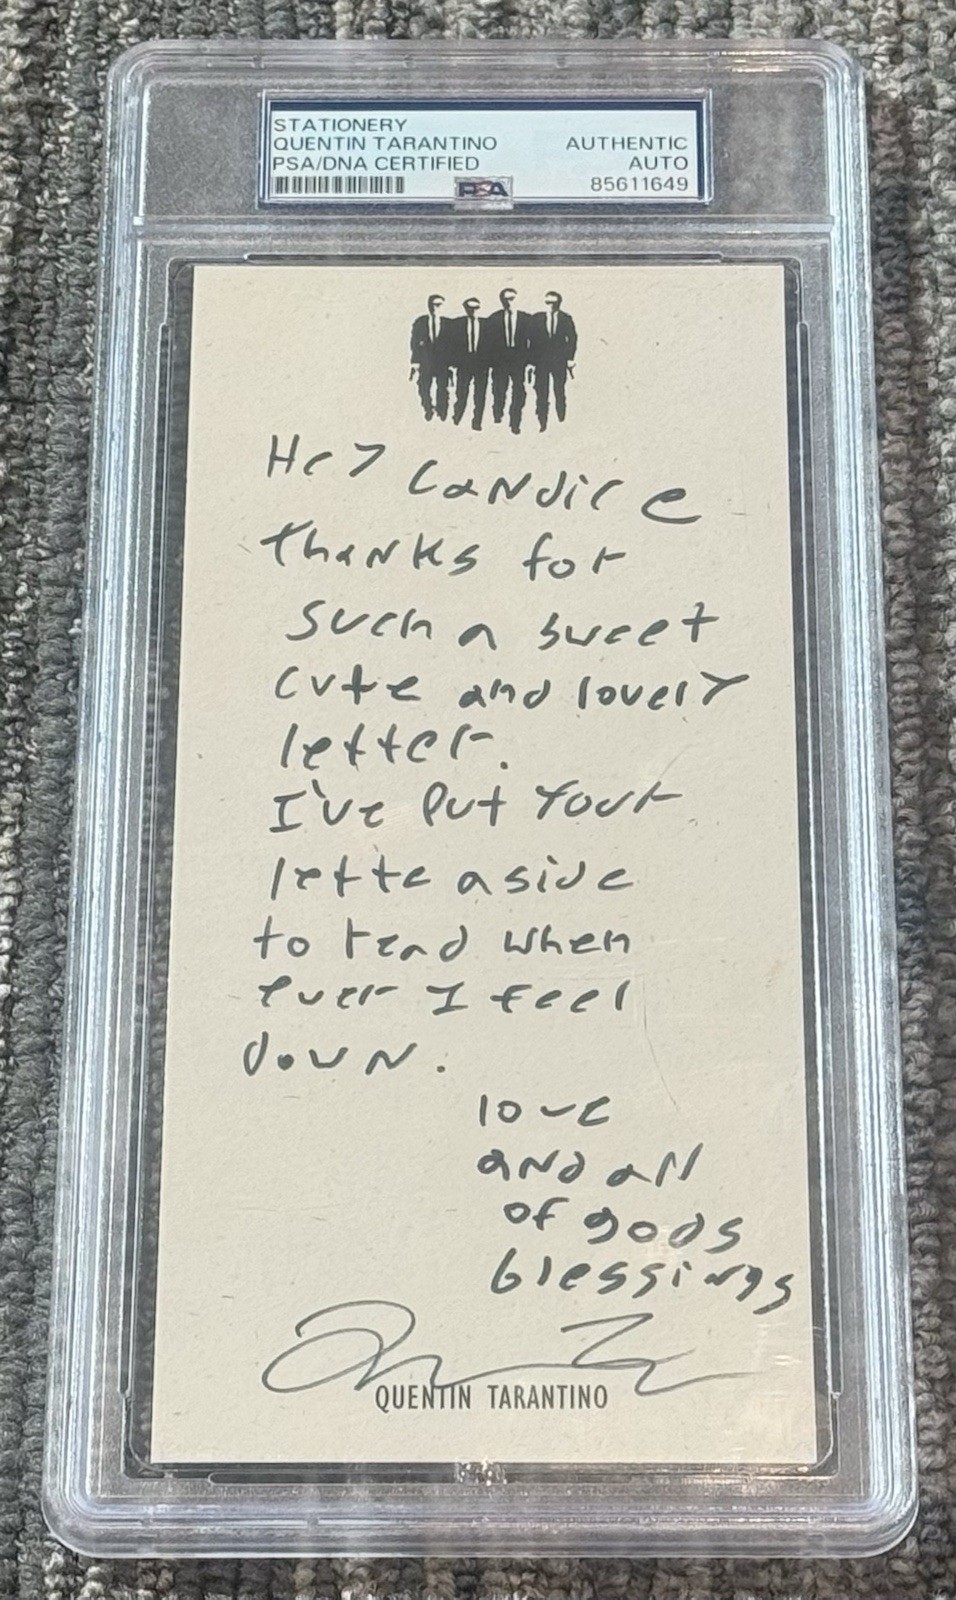 STATIONERY
QUENTIN TARANTINO AUTHENTIC
PSA/DNA CERTIFIED AUTO
PSA 85611649
Hey Candice
thanks for
such a sweet
cute and lovely
letter.
I've put your
lette aside
to read when
ever I feel
down.
love
and all
of gods
blessings
QUENTIN TARANTINO